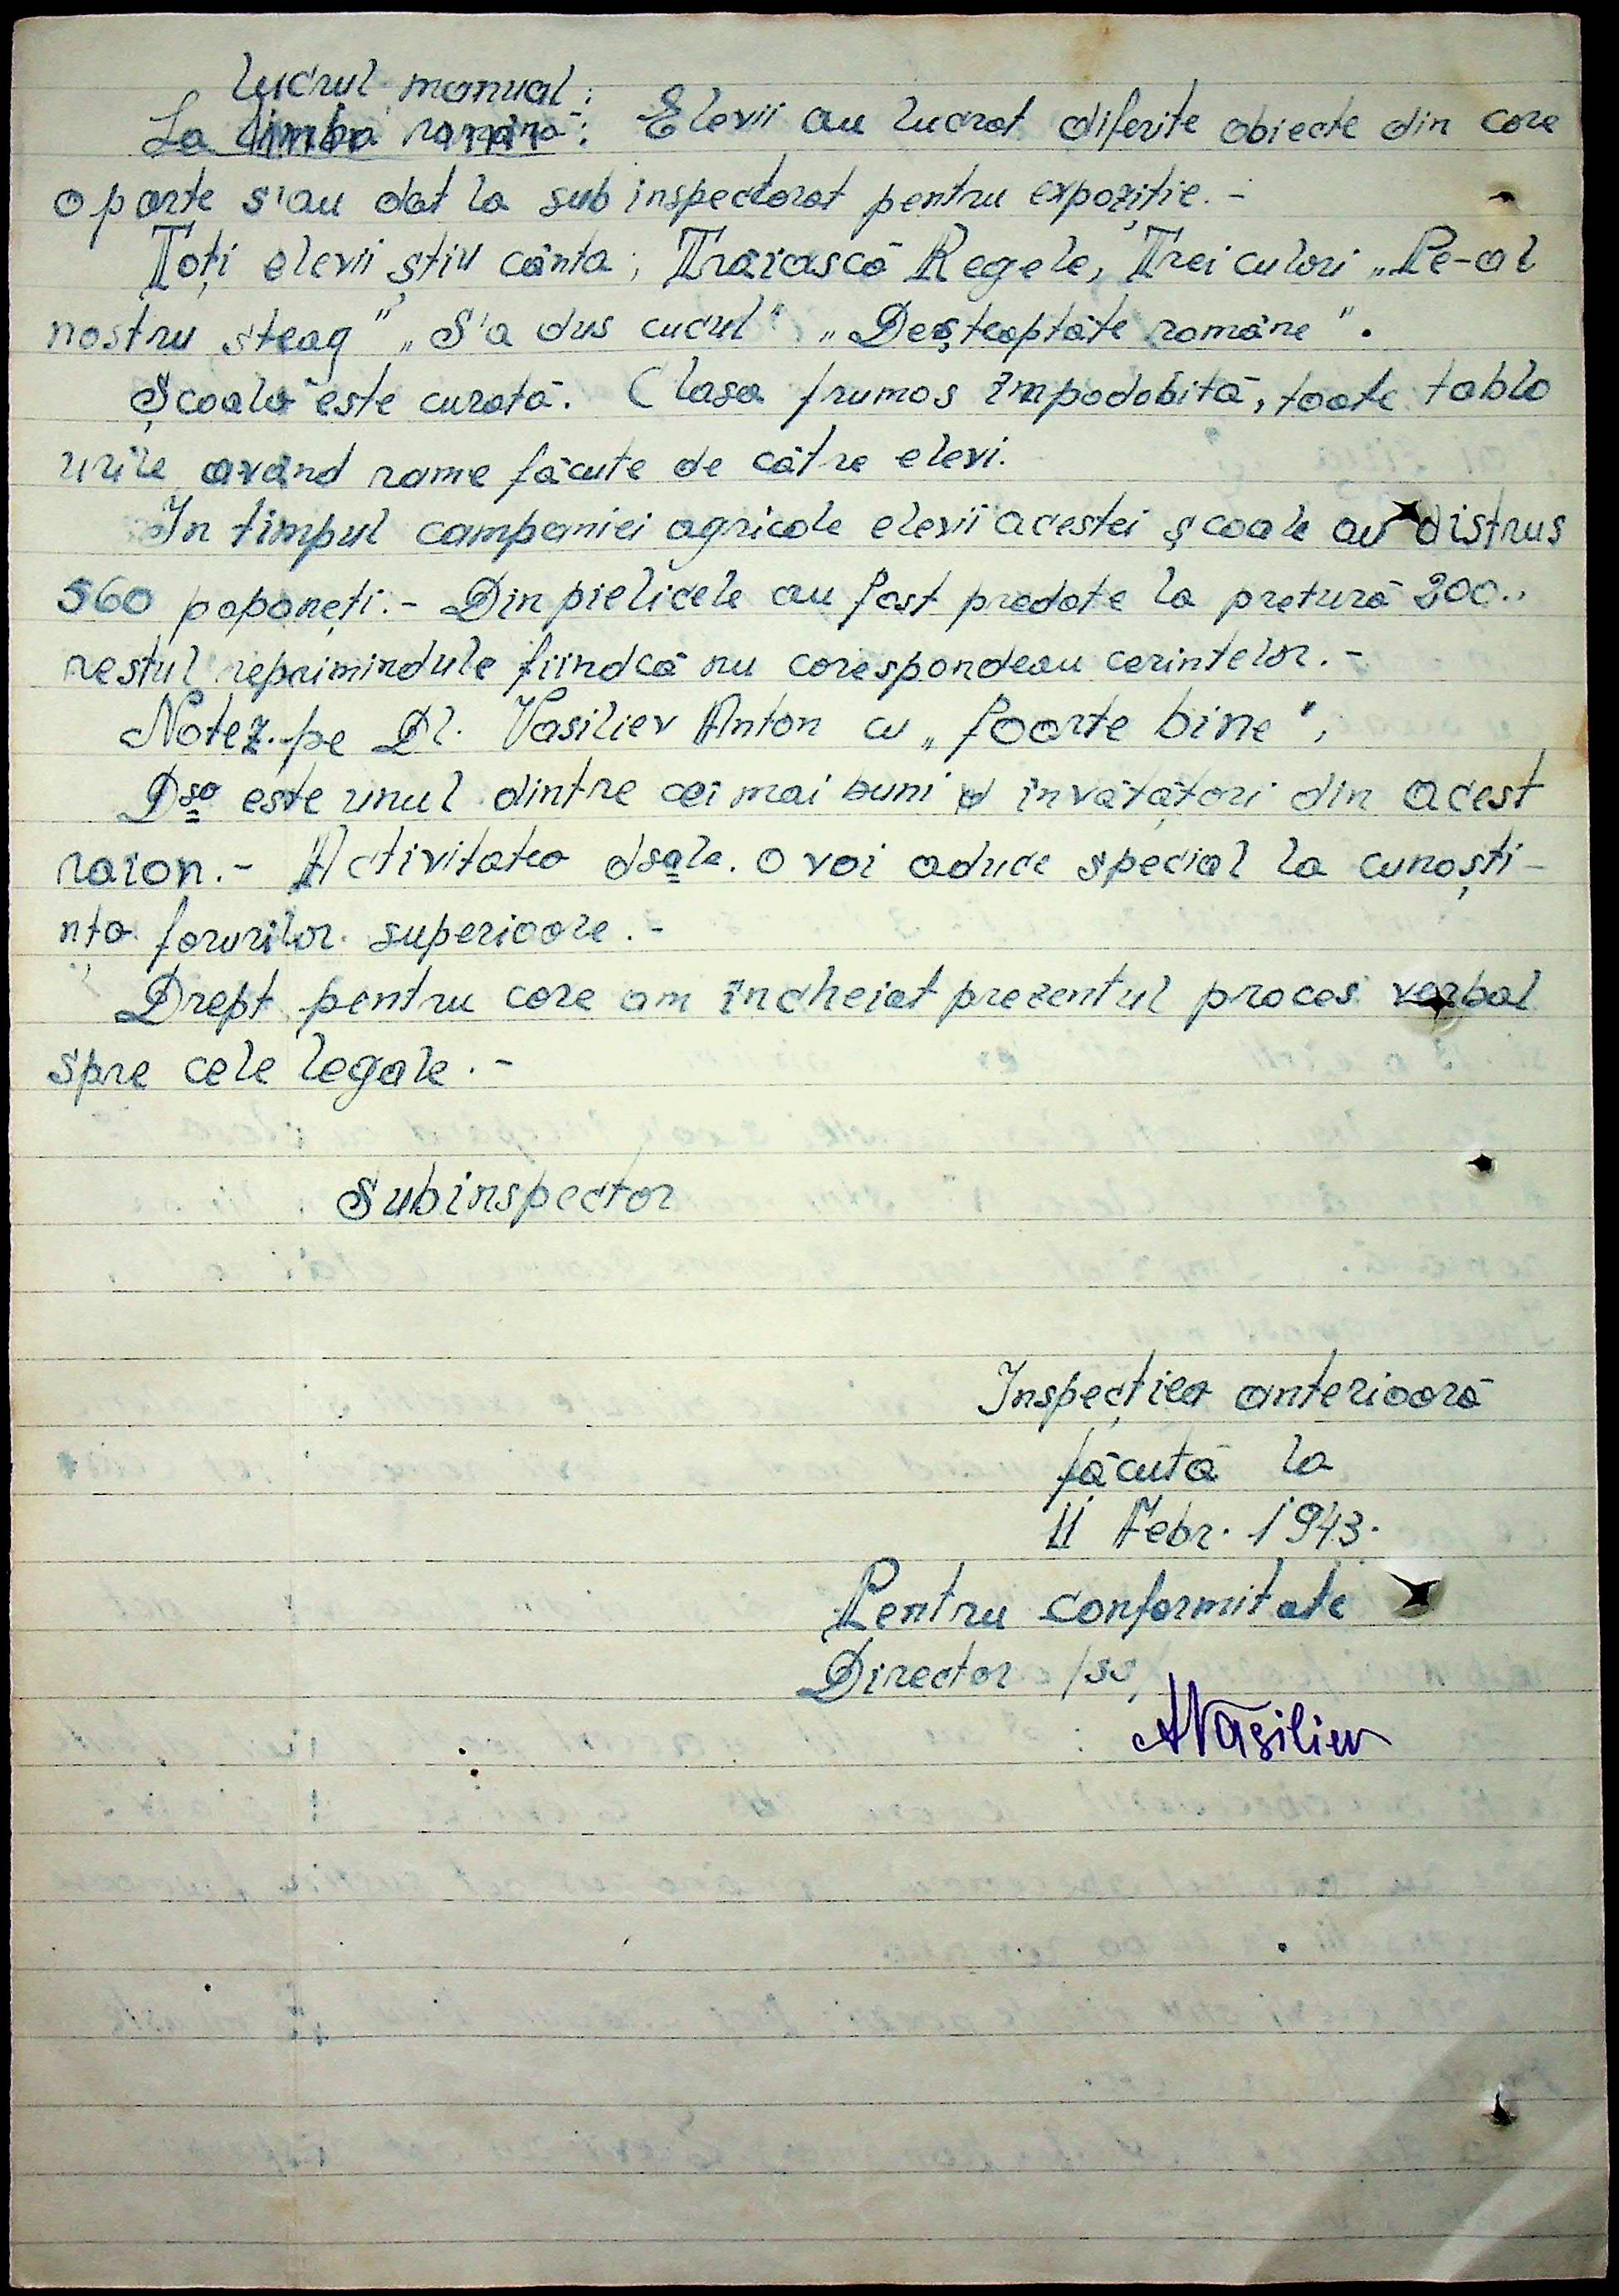 lucrul manual:
La limba română: Elevii au lucrat diferite obiecte din care
o parte s'au dat la sub inspectorat pentru expoziție.-
Toți elevii știu cânta; Trăiască Regele, Trei culori „Pe-al
nostru steag” „S'a dus cucul” „Deșteaptăte române”.
Școala este curată. Clasa frumos împodobită, toate tablo
urile având rame făcute de către elevi.
In timpul campaniei agricole elevii acestei școale au distrus
560 popaneți.- Din pielicele au fost predate la pretură 200..
restul reprimindule fiindcă nu corespondeau cerintelor.-
Notez pe Dl. Vasiliev Anton cu „foarte bine”.
Dsa este unul dintre cei mai buni învățători din acest
raion.- Activitatea dsale. o voi aduce special la cunoști-
nța forurilor superioare.-
Drept pentru care am încheiat prezentul proces verbal
spre cele legale.-
Subinspector
Inspecția anterioară
făcută la
11 Febr. 1943.
Pentru conformitate
Director /ss/
AVasiliev